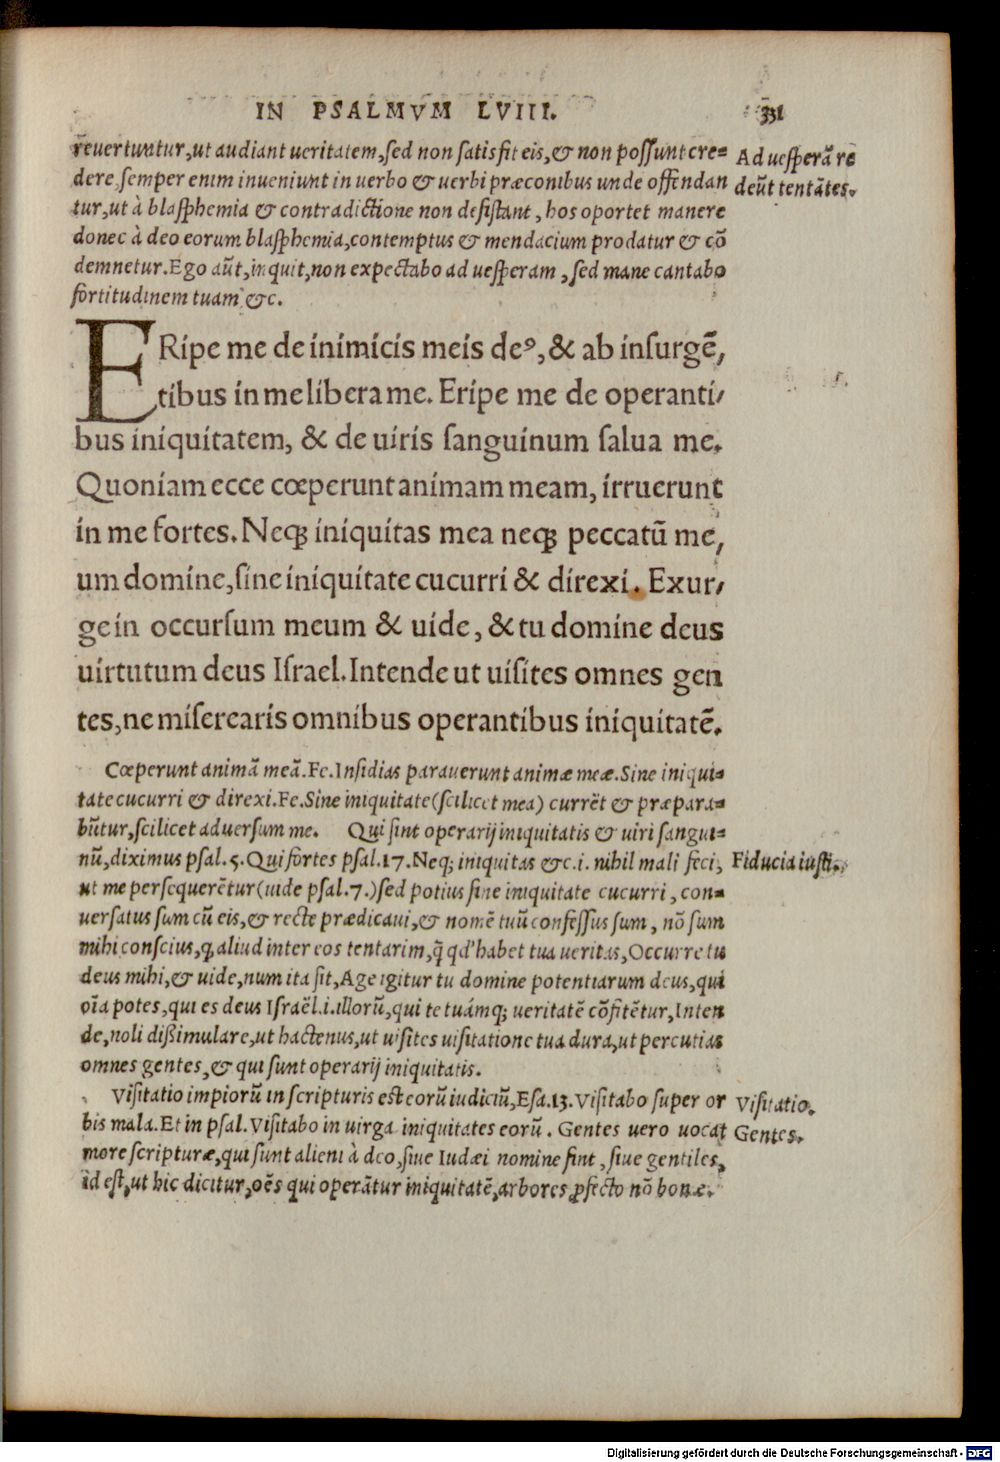 IN PSALMVM LVIII. 331
reuertuntur,ut audiant ueritatem,sed non satisfit eis,& non possunt cre=
dere,semper enim inueniunt in uerbo & uerbi præconibus unde offendan
tur,ut à blasphemia & contradictione non desistant, hos oportet manere
donec à deo eorum blasphemia,contemptus & mendacium prodatur & cõ
demnetur.Ego aũt,inquit,non expectabo ad uesperam, sed mane cantabo
fortitudinem tuam &c.
Ad uesperã re
deũt tentãtes.
ERipe me de inimicis meis deꝰ,& ab insurgẽ,
tibus in me libera me. Eripe me de operanti,
bus iniquitatem, & de uiris sanguinum salua me.
Quoniam ecce cœperunt animam meam, irruerunt
in me fortes. Neqꝫ iniquitas mea neqꝫ peccatũ me,
um domine,sine iniquitate cucurri & direxi. Exur,
ge in occursum meum & uide, & tu domine deus
uirtutum deus Israel. Intende ut uisites omnes gen
tes,ne miserearis omnibus operantibus iniquitatẽ.
Cœperunt animã meã.Fe.Insidias parauerunt animæ meæ.Sine iniqui=
tate cucurri & direxi.Fe.Sine iniquitate(scilicet mea) currẽt & præpara=
bũtur,scilicet aduersum me. Qui sint operarij iniquitatis & uiri sangui=
nũ,diximus psal.5.Qui fortes psal.17.Neqꝫ iniquitas &c.i. nihil mali feci,
ut me persequerẽtur(uide psal.7.)sed potius sine iniquitate cucurri, con=
uersatus sum cũ eis,& recte prædicaui,& nomẽ tuũ confessus sum, nõ sum
mihi conscius,ꝙ aliud inter eos tentarim,q̃ qd' habet tua ueritas,Occurre tu
deus mihi,& uide,num ita sit,Age igitur tu domine potentiarum deus,qui
oĩa potes,qui es deus Israël.i.illorũ,qui te tuámqꝫ ueritatẽ cõfitẽtur,Inten
de,noli dißimulare,ut hactenus,ut uisites uisitatione tua dura,ut percutias
omnes gentes,& qui sunt operarij iniquitatis.
Fiducia iusti.
Visitatio impiorũ in scripturis est eorũ iudiciũ,Esa.13.Visitabo super or
bis mala.Et in psal.Visitabo in uirga iniquitates eorũ. Gentes uero uocat
more scripturæ,qui sunt alieni à deo,siue Iudæi nomine sint, siue gentiles,
id est,ut hic dicitur,oẽs qui operãtur iniquitatẽ,arbores ꝓfecto nõ bonæ.
Visitatio.
Gentes.
Digitalisierung gefördert durch die Deutsche Forschungsgemeinschaft - DFG